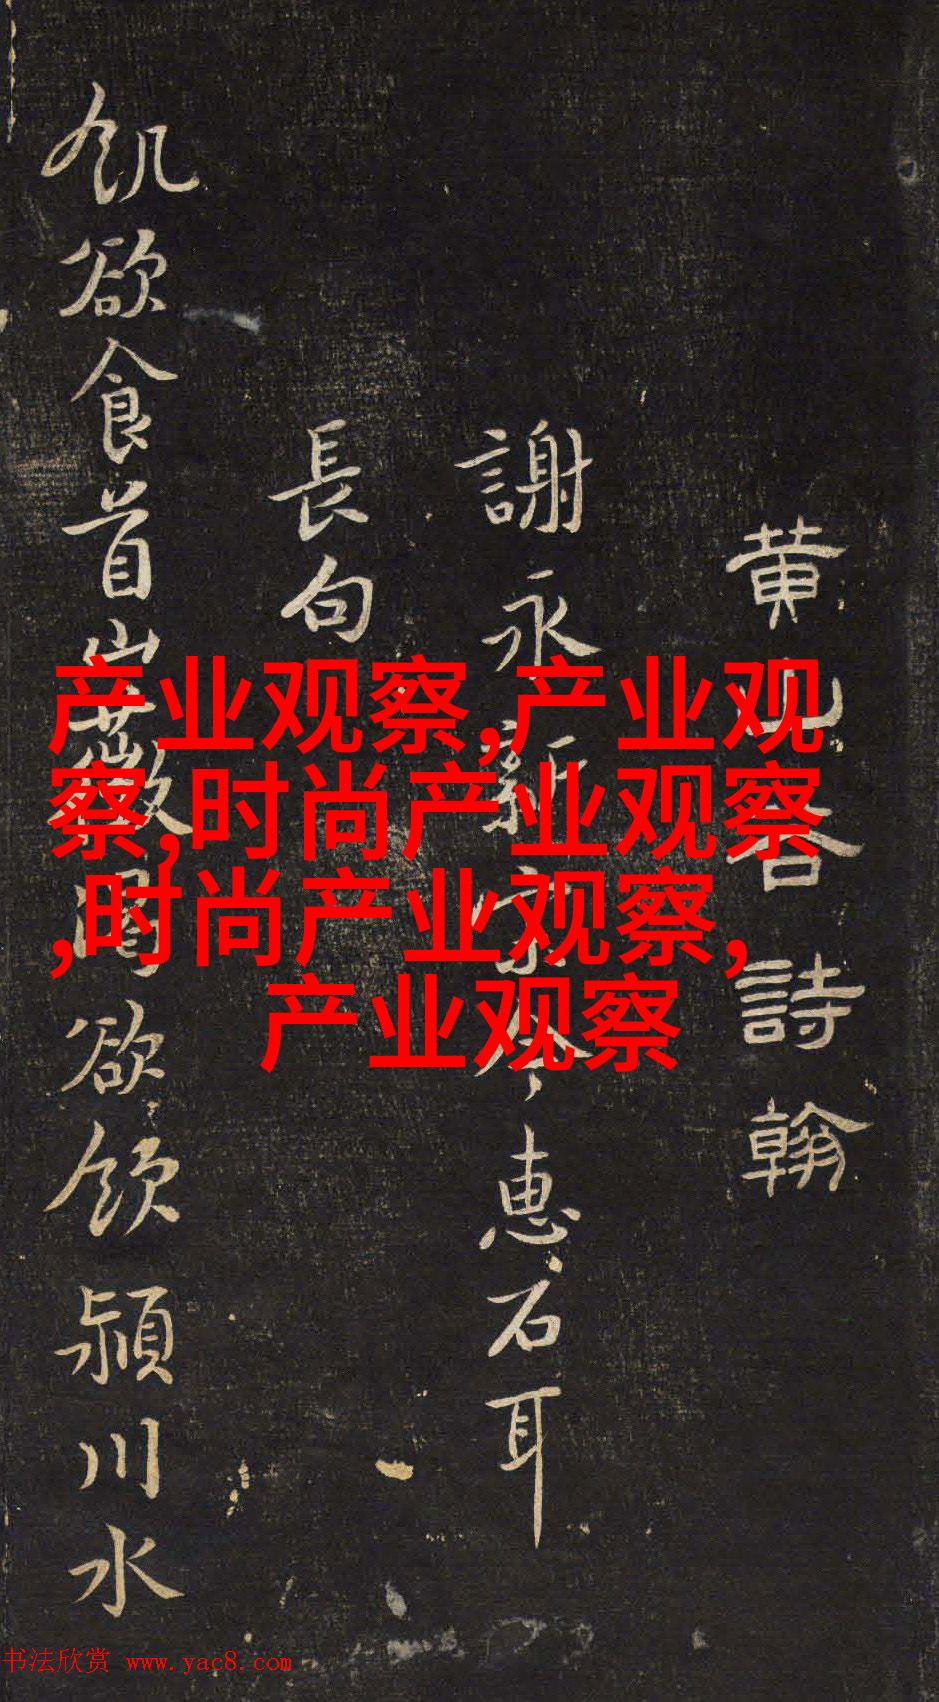 黄山谷詩翰
謝永新宗令惠石耳
長句
飢欲食首山薇渴欲飲潁川水
产业观察,产业观
察,时尚产业观察
,时尚产业观察,
产业观察
书法欣赏 www.yac8.com